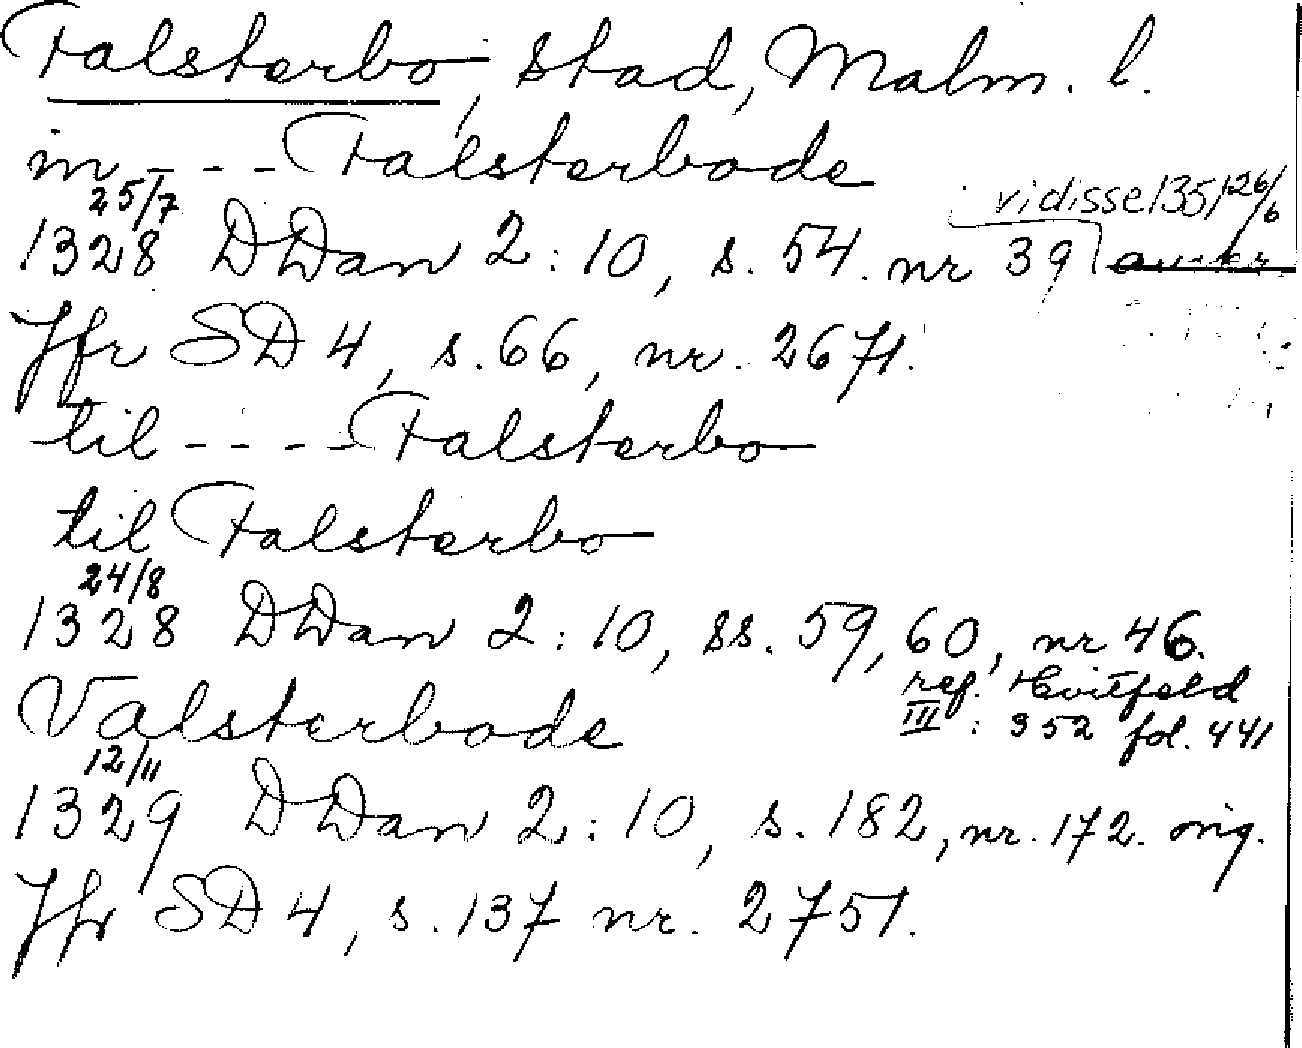 Falsterbo, stad, Malm. l.
in - - - Falsterbode
25/7 vidisse 1351 26/6
1328 DDan 2:10, s. 54. nr 39
Jfr SD 4, s. 66, nr. 2671.
til - - - - Falsterbo
til Falsterbo
24/8
1328 DDan 2:10, ss. 59, 60, nr 46.
ref. Hvitfeld
Valsterbode III : 352 fol. 441
12/11
1329 DDan 2:10, s. 182, nr. 172. orig.
Jfr SD 4, s. 137 nr. 2751.